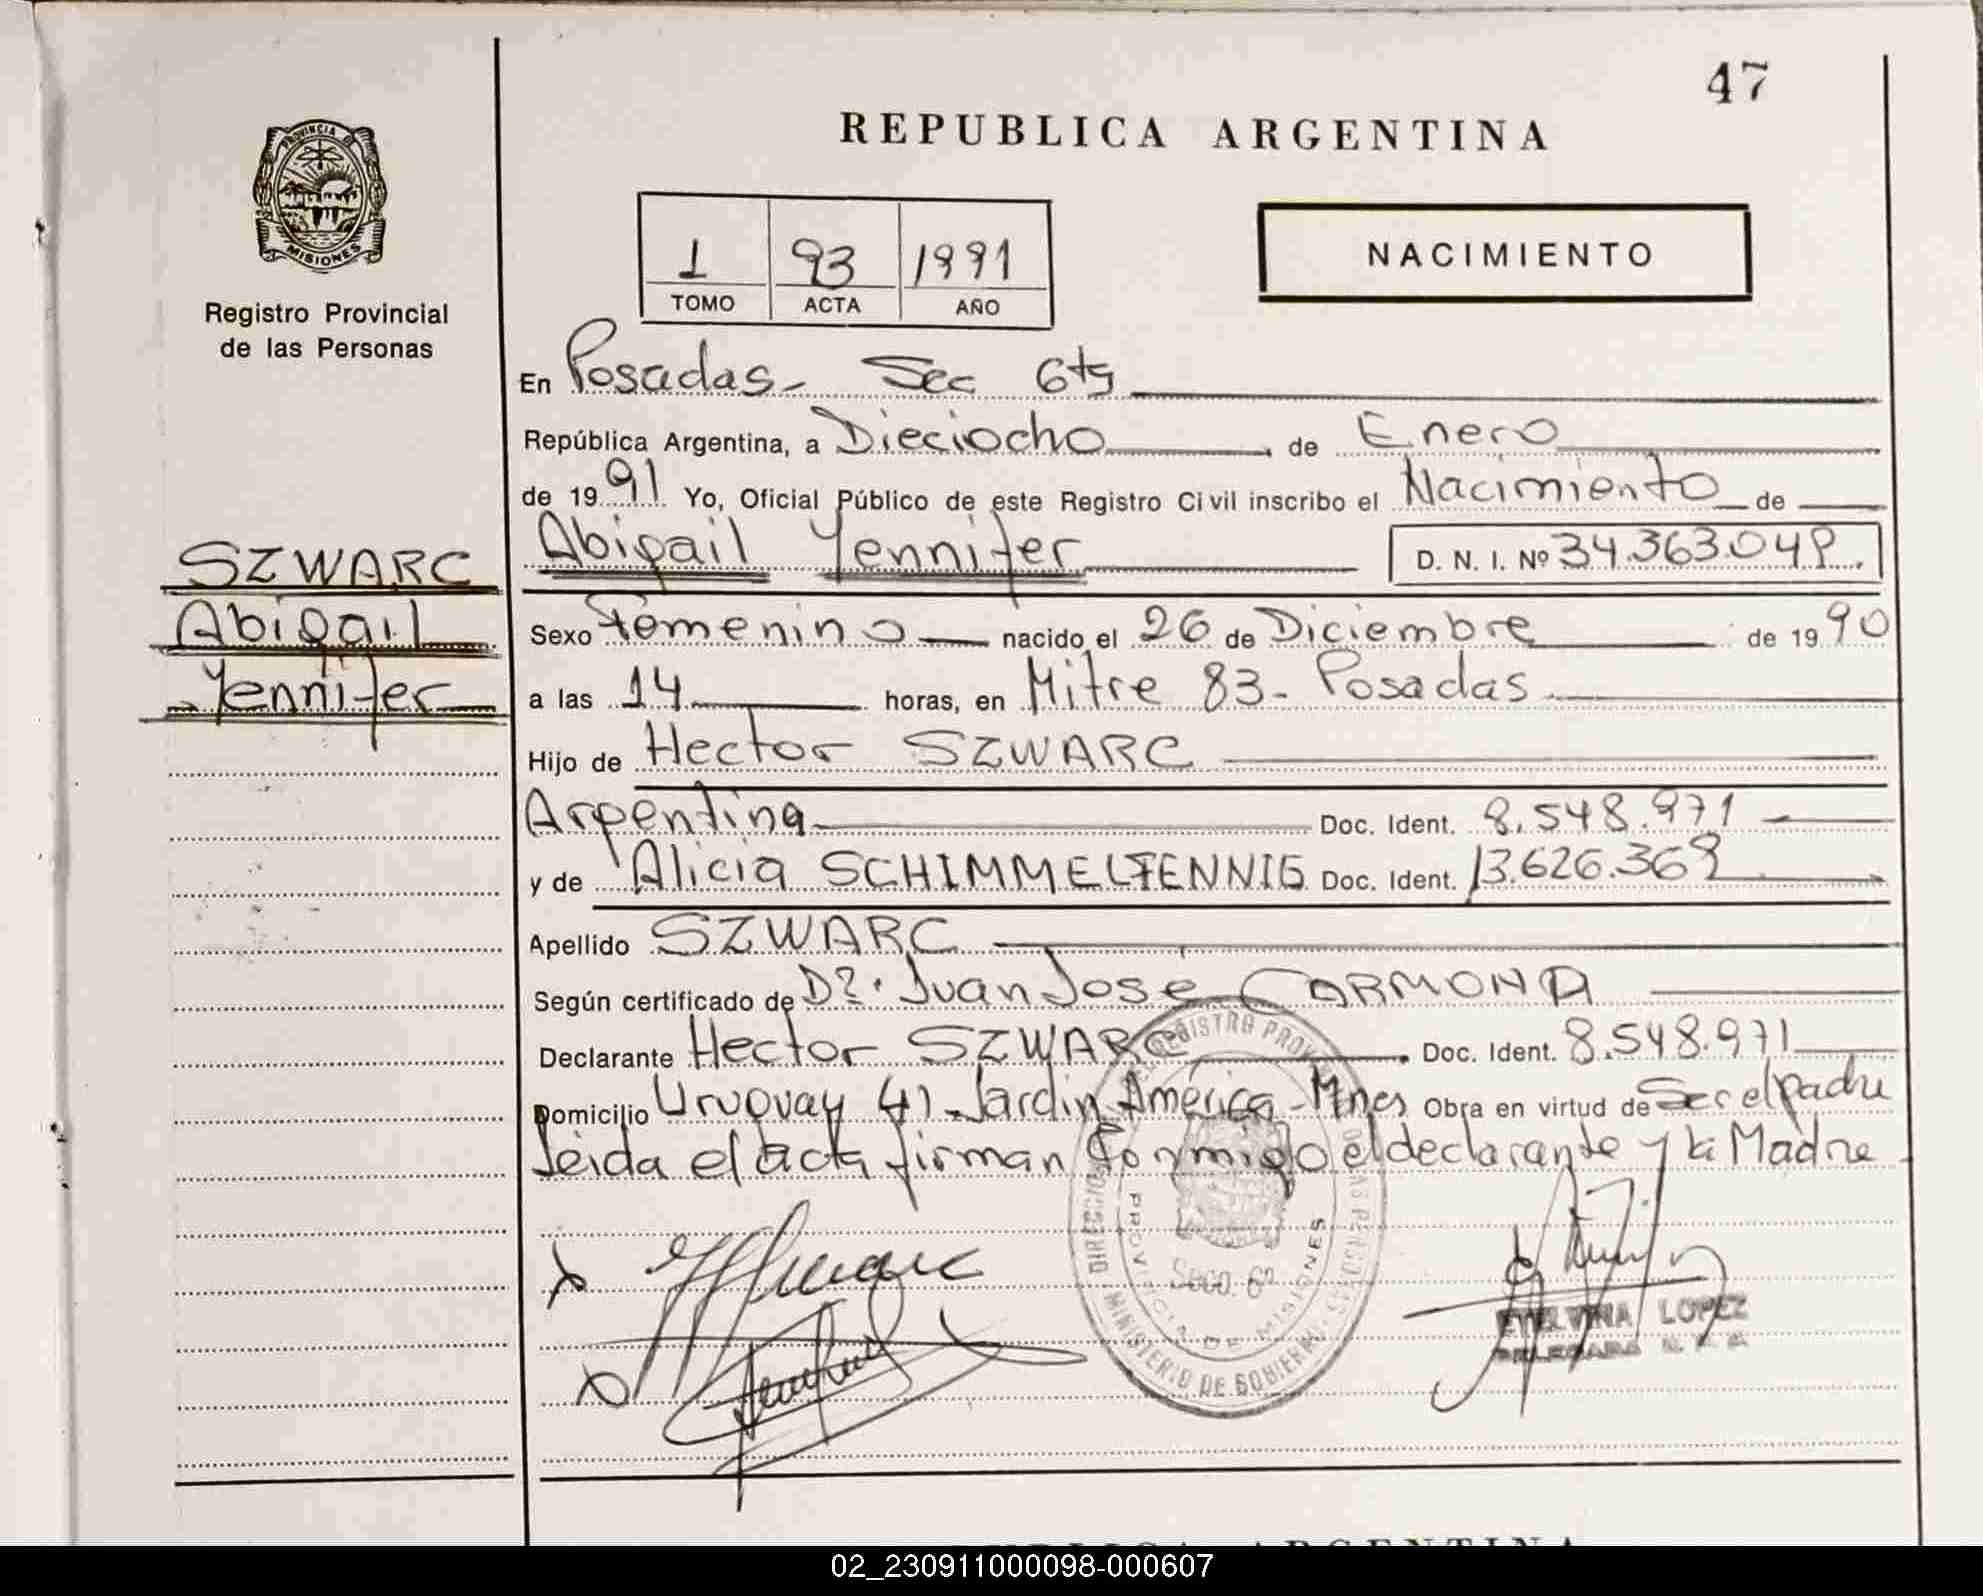 47
REPUBLICA ARGENTINA
PROVINCIA DE
MISIONES
Registro Provincial
de las Personas
1 93 1991
TOMO ACTA AÑO
NACIMIENTO
En Posadas - Sec 6ta
República Argentina, a Dieciocho de Enero
de 1991 Yo, Oficial Público de este Registro Civil inscribo el Nacimiento de
Abigail Yennifer D. N. I. Nº 34.363.049.
SZWARC
Abigail
Yennifer
Sexo Femenino nacido el 26 de Diciembre de 1990
a las 14 horas, en Mitre 83 - Posadas
Hijo de Hector SZWARC
Argentina Doc. Ident. 8.548.971
y de Alicia SCHIMMELFENNIG Doc. Ident. 13.626.369
Apellido SZWARC
Según certificado de Dr. Juan José CARMONA
Declarante Hector SZWARC Doc. Ident. 8.548.971
Domicilio Uruguay 41 - Jardin América - Mnes Obra en virtud de Ser el padre
Leida el acta firman Conmigo el declarante y la Madre
REGISTRO PROV DE LAS PERSONAS
MINISTERIO DE GOBIERNO
PROVINCIA DE MISIONES
SECC. 6ª
ETELVINA LOPEZ
DELEGADA
REPUBLICA ARGENTINA
02_230911000098-000607